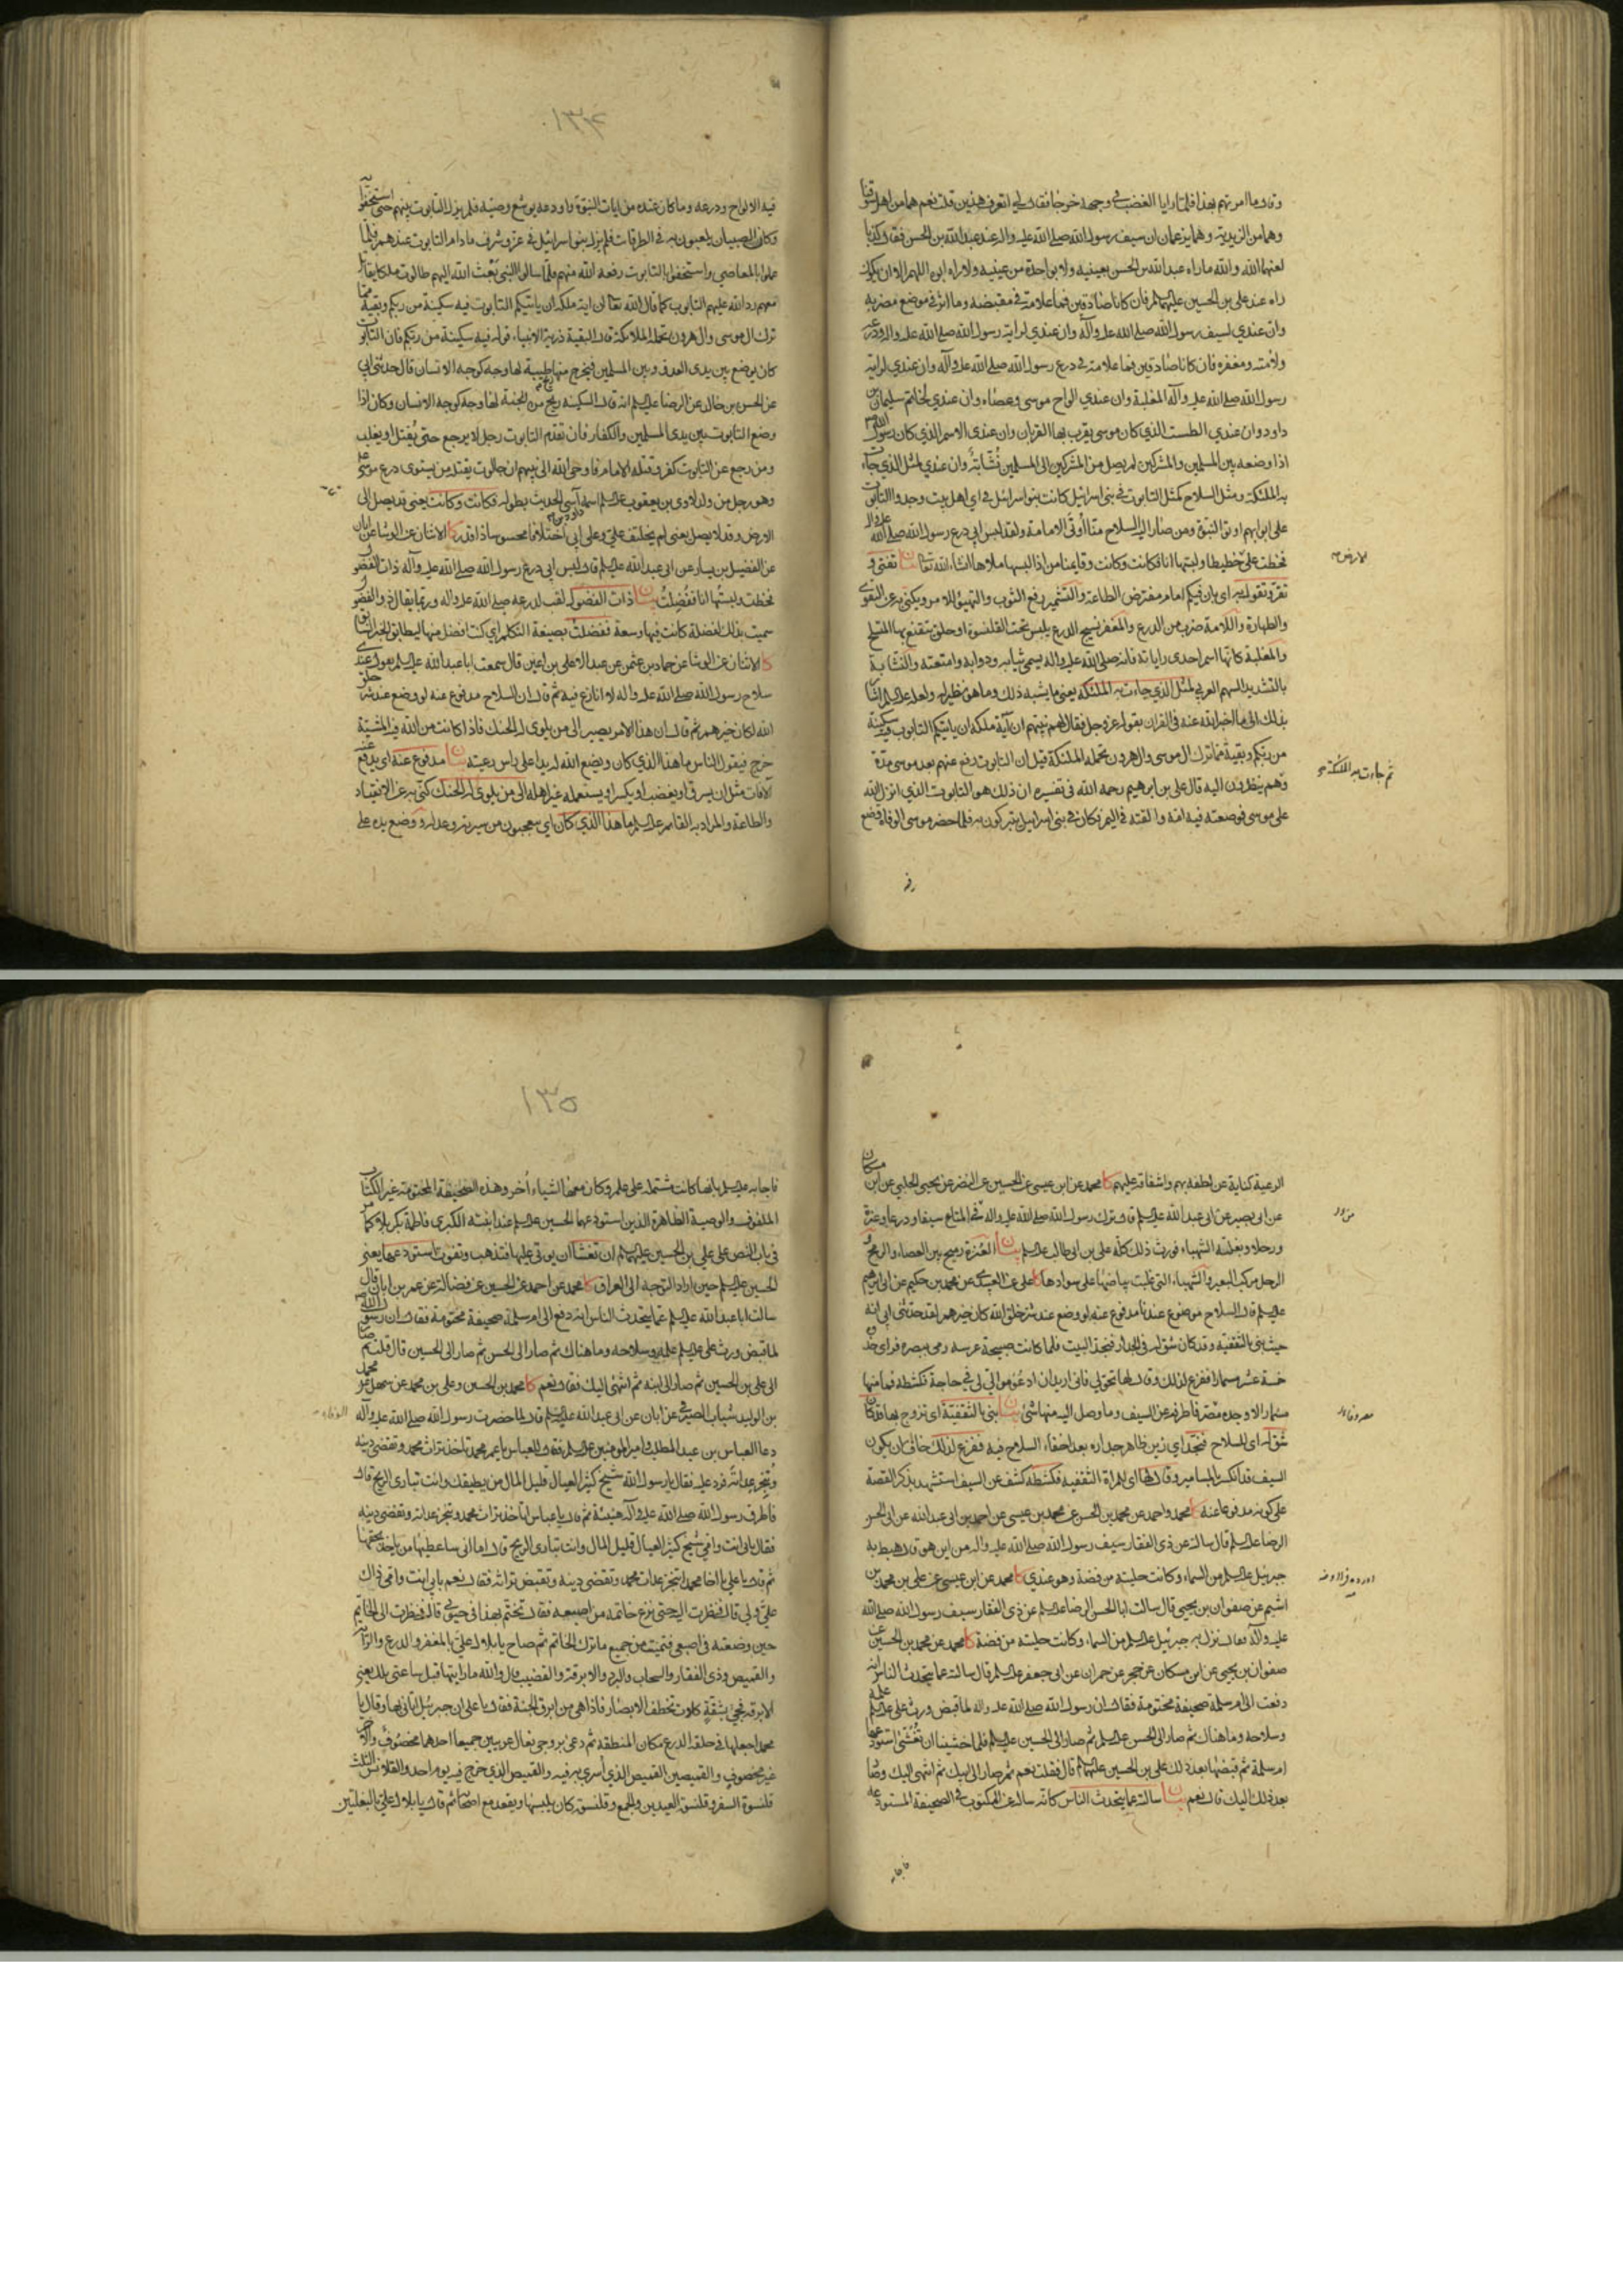 وقال ما امرتهم بهذا فلما رايا الغضب في وجهه خرجا فقال لي اتعرف هذين قلت نعم هما من اهل سوقنا
وهما من الزيدية وهما يزعمان ان سيف رسول الله صلى الله عليه واله عند عبد الله بن الحسن فقال كذبا
لعنهما الله والله ماراه عبد الله بن الحسن بعينيه ولا بواحدة من عينيه ولا راه ابوه اللهم الا ان يكون
راه عند علي بن الحسين عليهما فان كانا صادقين فما علامة في مقبضه وما اثر في موضع مضربه
وان عندي لسيف رسول الله صلى الله عليه وآله وان عندي لراية رسول الله صلى الله عليه واله ودرعه
ولامته ومغفره فان كانا صادقين فما علامة في درع رسول الله صلى الله عليه وآله وان عندي لراية
رسول الله صلى الله عليه وآله المغلبة وان عندي الواح موسى وعصاه وان عندي لخاتم سليمان بن
داود وان عندي الطست الذي كان موسى يقرب بها القربان وان عندي الاسم الذي كان رسول الله ص
اذا وضعه بين المسلمين والمشركين لم يصل من المشركين الى المسلمين نشابة وان عندي لمثل الذي جاءت
به الملئكة ومثل السلاح كمثل التابوت في بني اسرائيل كانت بنو اسرائيل في اي اهل بيت وجد التابوت
على ابوابهم اوتوا النبوة ومن صار اليه السلاح منا اوتي الامامة ولقد لبس ابي درع رسول الله صلى الله عليه واله
فخطت على خطيطا ولبستها انا فكانت وكانت وقايمنا من اذا لبسها ملاها انشاء الله تعالى بيان
والطهارة واللامة ضرب من الدرع والمغفر نسيج الدرع يلبس تحت القلنسوة او حلق يتقنع بها المتسلح
والمغلبة كانها اسم احدى راياته فانه صلى الله عليه واله يسمى ثيابه ودوابه وامتعته والنشابة
بالتشديد السهم العربي لمثل الذي جاءت به الملئكة يعني ما يشبه ذلك وما هو نظير له
بذلك الى ما اخبر الله عنه في القران بقوله عز وجل فقال لهم نبيهم ان آية ملكه ان ياتيكم التابوت فيه سكينة
من ربكم وبقية مما ترك ال موسى وال هرون تحمله الملئكة قيل ان التابوت رفع عنهم بعد موسى مدة
وهم ينظرون اليه قال علي بن ابرهيم رحمه الله في تفسيره ان ذلك هو التابوت الذي انزل الله
على موسى فوضعته فيه امه والقته في اليم فكان في بني اسرائيل يتبركون به فلما حضر موسى الوفاة وضع
ثم جاءت به الملئكة
۱۳۴
فيه الالواح ودرعه وما كان عنده من ايات النبوة واودعه يوشع وصيه فلم يزل التابوت بينهم حتى استخفوا
وكان الصبيان يلعبون به في الطرقات فلم يزل بنو اسرائيل في عز وشرف ما دام التابوت عندهم فلما
عملوا بالمعاصي واستخفوا بالتابوت رفعه الله منهم فلما سالوا النبي بعث الله اليهم طالوت ملكا يقاتل
معهم رد الله عليهم التابوت كما قال الله تعالى ان اية ملكه ان ياتيكم التابوت فيه سكينة من ربكم وبقية مما
ترك ال موسى وال هرون تحمله الملائكة قال البقية ذرية الانبياء قوله فيه سكينة من ربكم فان التابوت
كان يوضع بين يدي العدو وبين المسلمين فيخرج منها طيبة لها وجه كوجه الانسان قال حدثني ابي
عن الحسن بن خالد عن الرضا عليه السلم انه قال السكينة ريح من الجنة لها وجه كوجه الانسان وكان اذا
وضع التابوت بين يدي المسلمين والكفار فان تقدم التابوت رجل لا يرجع حتى يقتل او يغلب
ومن رجع عن التابوت كفر وقتله الامام فاوحى الله الى نبيهم ان جالوت يقتله من يستوي درع موسى عليه
وهو رجل من ولد لاوي بن يعقوب عليه السلم اسمه آسي الحديث بطوله فكانت وكانت يعني قد يصل الى
الارض وقد لا يصل يعني لم يختلف علي وعلى ابي اختلافا محسوسا ذا قدر كا الاثنان عن الوشاء عن ابان
عن الفضيل بن يسار عن ابي عبد الله عليه السلم قال لبس ابي درع رسول الله صلى الله عليه وآله ذات الفضول
فخطت ولبستها انا ففضلت بيان ذات الفضول لقب لدرعه صلى الله عليه واله وربما يقال ذو الفضول
سميت بذلك لفضلة كانت فيها وسعة ففضلت بصيغة التكلم اي كنت افضل منها ليطابق الخبر السابق
كا الاثنان عن الوشا عن حماد بن عثمن عن عبد الاعلى بن اعين قال سمعت ابا عبد الله عليه السلم يقول عندي
سلاح رسول الله صلى الله عليه واله لا انازع فيه ثم قال ان السلاح مدفوع عنه لو وضع عند شر خلق
الله لكان خيرهم ثم قال ان هذا الامر يصير الى من يلوى له الحنك فاذا كانت من الله فيه المشية
خرج فيقول الناس ما هذا الذي كان ويضع الله له يدا على راس رعيته بيان مدفوع عنه اي يدفع عنه
الآفات مثل ان يسرق او يغصب او يكسر او يستعمله غير اهله الى من يلوى له الحنك كنى به عن الانقياد
والطاعة والمراد به القائم عليه السلم ما هذا الذي كان اي يتعجبون من سيرته وعدله ووضع يده على
الرعية كناية عن لطفه بهم واشفاقه عليهم كا محمد عن ابن عيسى عن الحسين عن النضر عن يحيى الحلبي عن ابن مسكان
عن ابي بصير عن ابي عبد الله عليه السلم قال ترك رسول الله صلى الله عليه واله في المتاع سيفا ودرعا وعنزة
ورحلا وبغلته الشهباء فورث ذلك كله علي بن ابي طالب عليه السلم بيان العنزة رميح بين العصاء والرمح
الرحل مركب البعير والشهباء التي غلبت بياضها على سوادها كا علي عن العبيدي عن محمد بن حكيم عن ابي ابرهيم
عليه السلم قال السلاح موضوع عندنا مدفوع عنه لو وضع عند شر خلق الله كان خيرهم لقد حدثني ابي انه
حيث بنى بالثقفية وقد كان شق له في الجدار فنجد البيت فلما كانت صبيحة عرسه رمى ببصره فراى حذوه
خمسة عشر مسمارا ففزع لذلك وقال لها تحولي فاني اريد ان ادعو موالي في حاجة فكشطه فما منها
مسمار الا وجده مصرفا طرفه عن السيف وما وصل اليه منها شئ بيان بنى بالثقفية اي تزوج بها قد كان
شق له اي للسلاح فنجد اي زين ظاهر جداره بعد اخفاء السلاح فيه ففزع لذلك خاف ان يكون
السيف قد انكسر بالمسامير وقال لها اي للمراة الثقفية فكشطه كشف عن السيف استشهد بذكر القصة
على كونه مدفوعا عنه كا محمد واحمد عن محمد بن الحسن عن محمد بن عيسى عن احمد بن ابي عبد الله عن ابي الحسن
الرضا عليه السلم قال سالته عن ذي الفقار سيف رسول الله صلى الله عليه واله من اين هو قال هبط به
جبرئيل عليه السلم من السماء وكانت حليته من فضة وهو عندي كا محمد عن ابن عيسى عن علي بن محمد بن
اشيم عن صفوان بن يحيى قال سالت ابا الحسن الرضا عليه السلم عن ذي الفقار سيف رسول الله صلى الله
عليه وآله فقال نزل به جبرئيل من السماء وكانت حليته من فضة كا محمد عن محمد بن الحسين عن
صفوان بن يحيى عن ابن مسكان عن حجر عن حمران عن ابي جعفر عليه السلم قال سالته عما يتحدث الناس انه
دفعت الى ام سلمة صحيفة مختومة فقال ان رسول الله صلى الله عليه واله لما قبض ورث علي عليه السلم علمه
وسلاحه وما هناك ثم صار الى الحسن عليه السلم ثم صار الى الحسين عليه السلم فلما خشينا ان نغشى استودعها
ام سلمة ثم قبضها بعد ذلك علي بن الحسين عليهما السلم قال فقلت نعم ثم صار الى ابيك ثم انتهى اليك وصار
بعد ذلك اليك قال نعم بيان سالته عما يتحدث الناس كانه ساله عن المكتوب في الصحيفة المستودعة
۱۳۵
فاجابه عليه السلم بانها كانت مشتملة على علم وكان معها اشياء أخر وهذه الصحيفة المختومة غير الكتاب
الملفوف والوصية الظاهرة الذين استودعهما الحسين عليه السلم عند ابنته الكبرى فاطمة بكربلا كما مر
في باب النص على علي بن الحسين عليهما السلم ان نغشا ان يؤتى عليها فتذهب وتفوت استودعها يعني
الحسين عليه السلم حين اراد التوجه الى العراق كا محمد عن احمد عن الحسين عن فضالة عن عمر بن ابان قال
سالت ابا عبد الله عليه السلم عما يتحدث الناس انه دفع الى ام سلمة صحيفة مختومة فقال ان رسول الله ص
لما قبض ورث علي عليه السلم علمه وسلاحه وما هناك ثم صار الى الحسن ثم صار الى الحسين قال قلت ثم صار
الى علي بن الحسين ثم صار الى ابنه ثم انتهى اليك فقال نعم كا محمد بن الحسين وعلي بن محمد عن سهل عن محمد
بن الوليد شباب الصيرفي عن ابان عن ابي عبد الله عليه السلم قال لما حضرت رسول الله صلى الله عليه وآله
دعا العباس بن عبد المطلب وامير المومنين عليه السلم فقال للعباس يا عم محمد تاخذ تراث محمد وتقضي دينه
وتنجز عداته فرد عليه فقال يا رسول الله شيخ كثير العيال قليل المال من يطيقك وانت تباري الريح قال
فاطرق رسول الله صلى الله عليه وآله هنيئة ثم قال يا عباس اتاخذ تراث محمد وتنجز عداته وتقضي دينه
فقال بابي انت وامي شيخ كثير العيال قليل المال وانت تباري الريح قال اما اني ساعطيها من ياخذ بحقها
ثم قال يا علي يا اخا محمد اتنجز عدات محمد وتقضي دينه وتقبض تراثه فقال نعم بابي انت وامي ذاك
علي ولي قال فنظرت اليه حتى نزع خاتمه من اصبعه فقال تختم بهذا في حيوتي قال فنظرت الى الخاتم
حين وضعته في اصبعي فتمنيت من جميع ما ترك الخاتم ثم صاح يا بلال علي بالمغفر والدرع والراية
والقميص وذي الفقار والسحاب والبرد والابرقة والقضيب قال فوالله ما رايتها قبل ساعتي تلك يعني
الابرقة فجئ بشقة كادت تخطف الابصار فاذا هي من ابرق الجنة فقال يا علي ان جبرئيل اتاني بها وقال يا
محمد اجعلها في حلقة الدرع مكان المنطقة ثم دعى بزوجي نعال عربيين جميعا احدهما مخصوف والاخر
غير مخصوف والقميصين القميص الذي أسري به فيه والقميص الذي خرج فيه يوم احد والقلانس الثلث
قلنسوة السفر وقلنسوة العيدين والجمع وقلنسوة كان يلبسها ويقعد مع اصحابه ثم قال يا بلال علي بالبغلتين